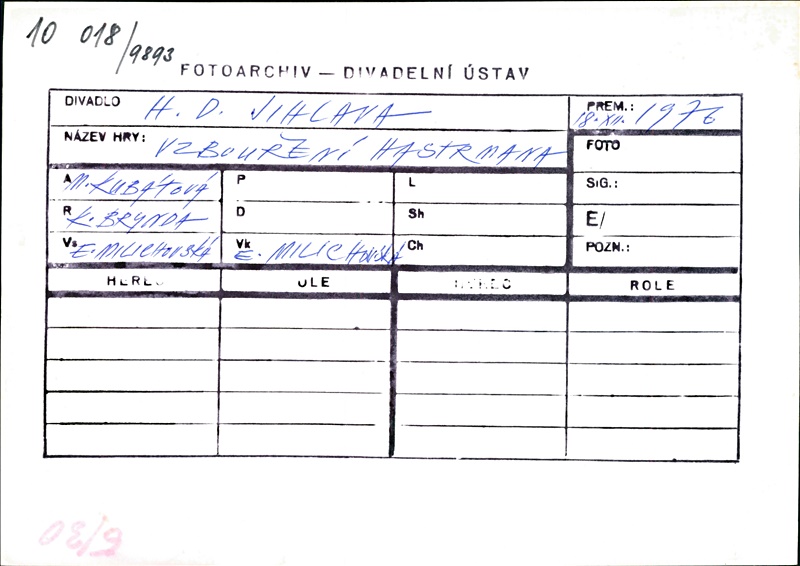 10 018/9893
FOTOARCHIV — DIVADELNÍ ÚSTAV
DIVADLO H. D. JIHLAVA PREM.: 18. XII. 1976
NÁZEV HRY: VZBOUŘENÍ HASTRMANA FOTO
A M. KUBÁTOVÁ P L SIG.:
R K. BRYNDA D Sh E/
Vs E. MILICHOVSKÁ Vk E. MILICHOVSKÁ Ch POZN.:
HEREC OLE HEREC ROLE